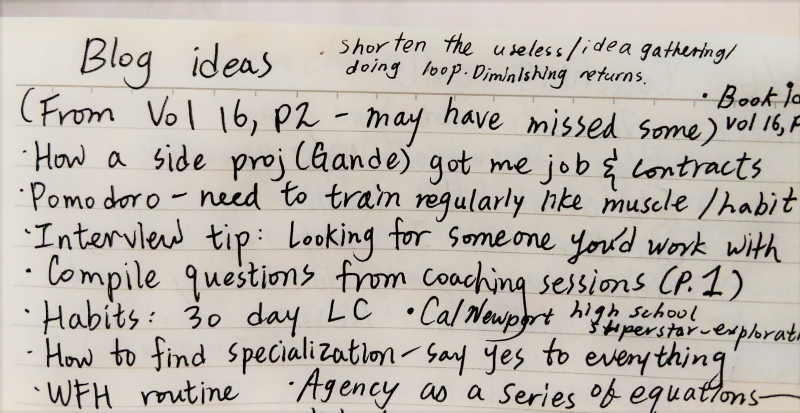 Blog ideas
· shorten the useless/idea gathering/
doing loop. Diminishing returns.
· Book
(From Vol 16, P2 - may have missed some)
Vol 16, P
· How a side proj (Gande) got me job & contracts
· Pomodoro - need to train regularly like muscle / habit
· Interview tip: Looking for someone you'd work with
· Compile questions from coaching sessions (P.1)
· Habits: 30 day LC · Cal Newport high school
superstar - explorati
· How to find specialization - say yes to everything
· WFH routine · Agency as a series of equations -